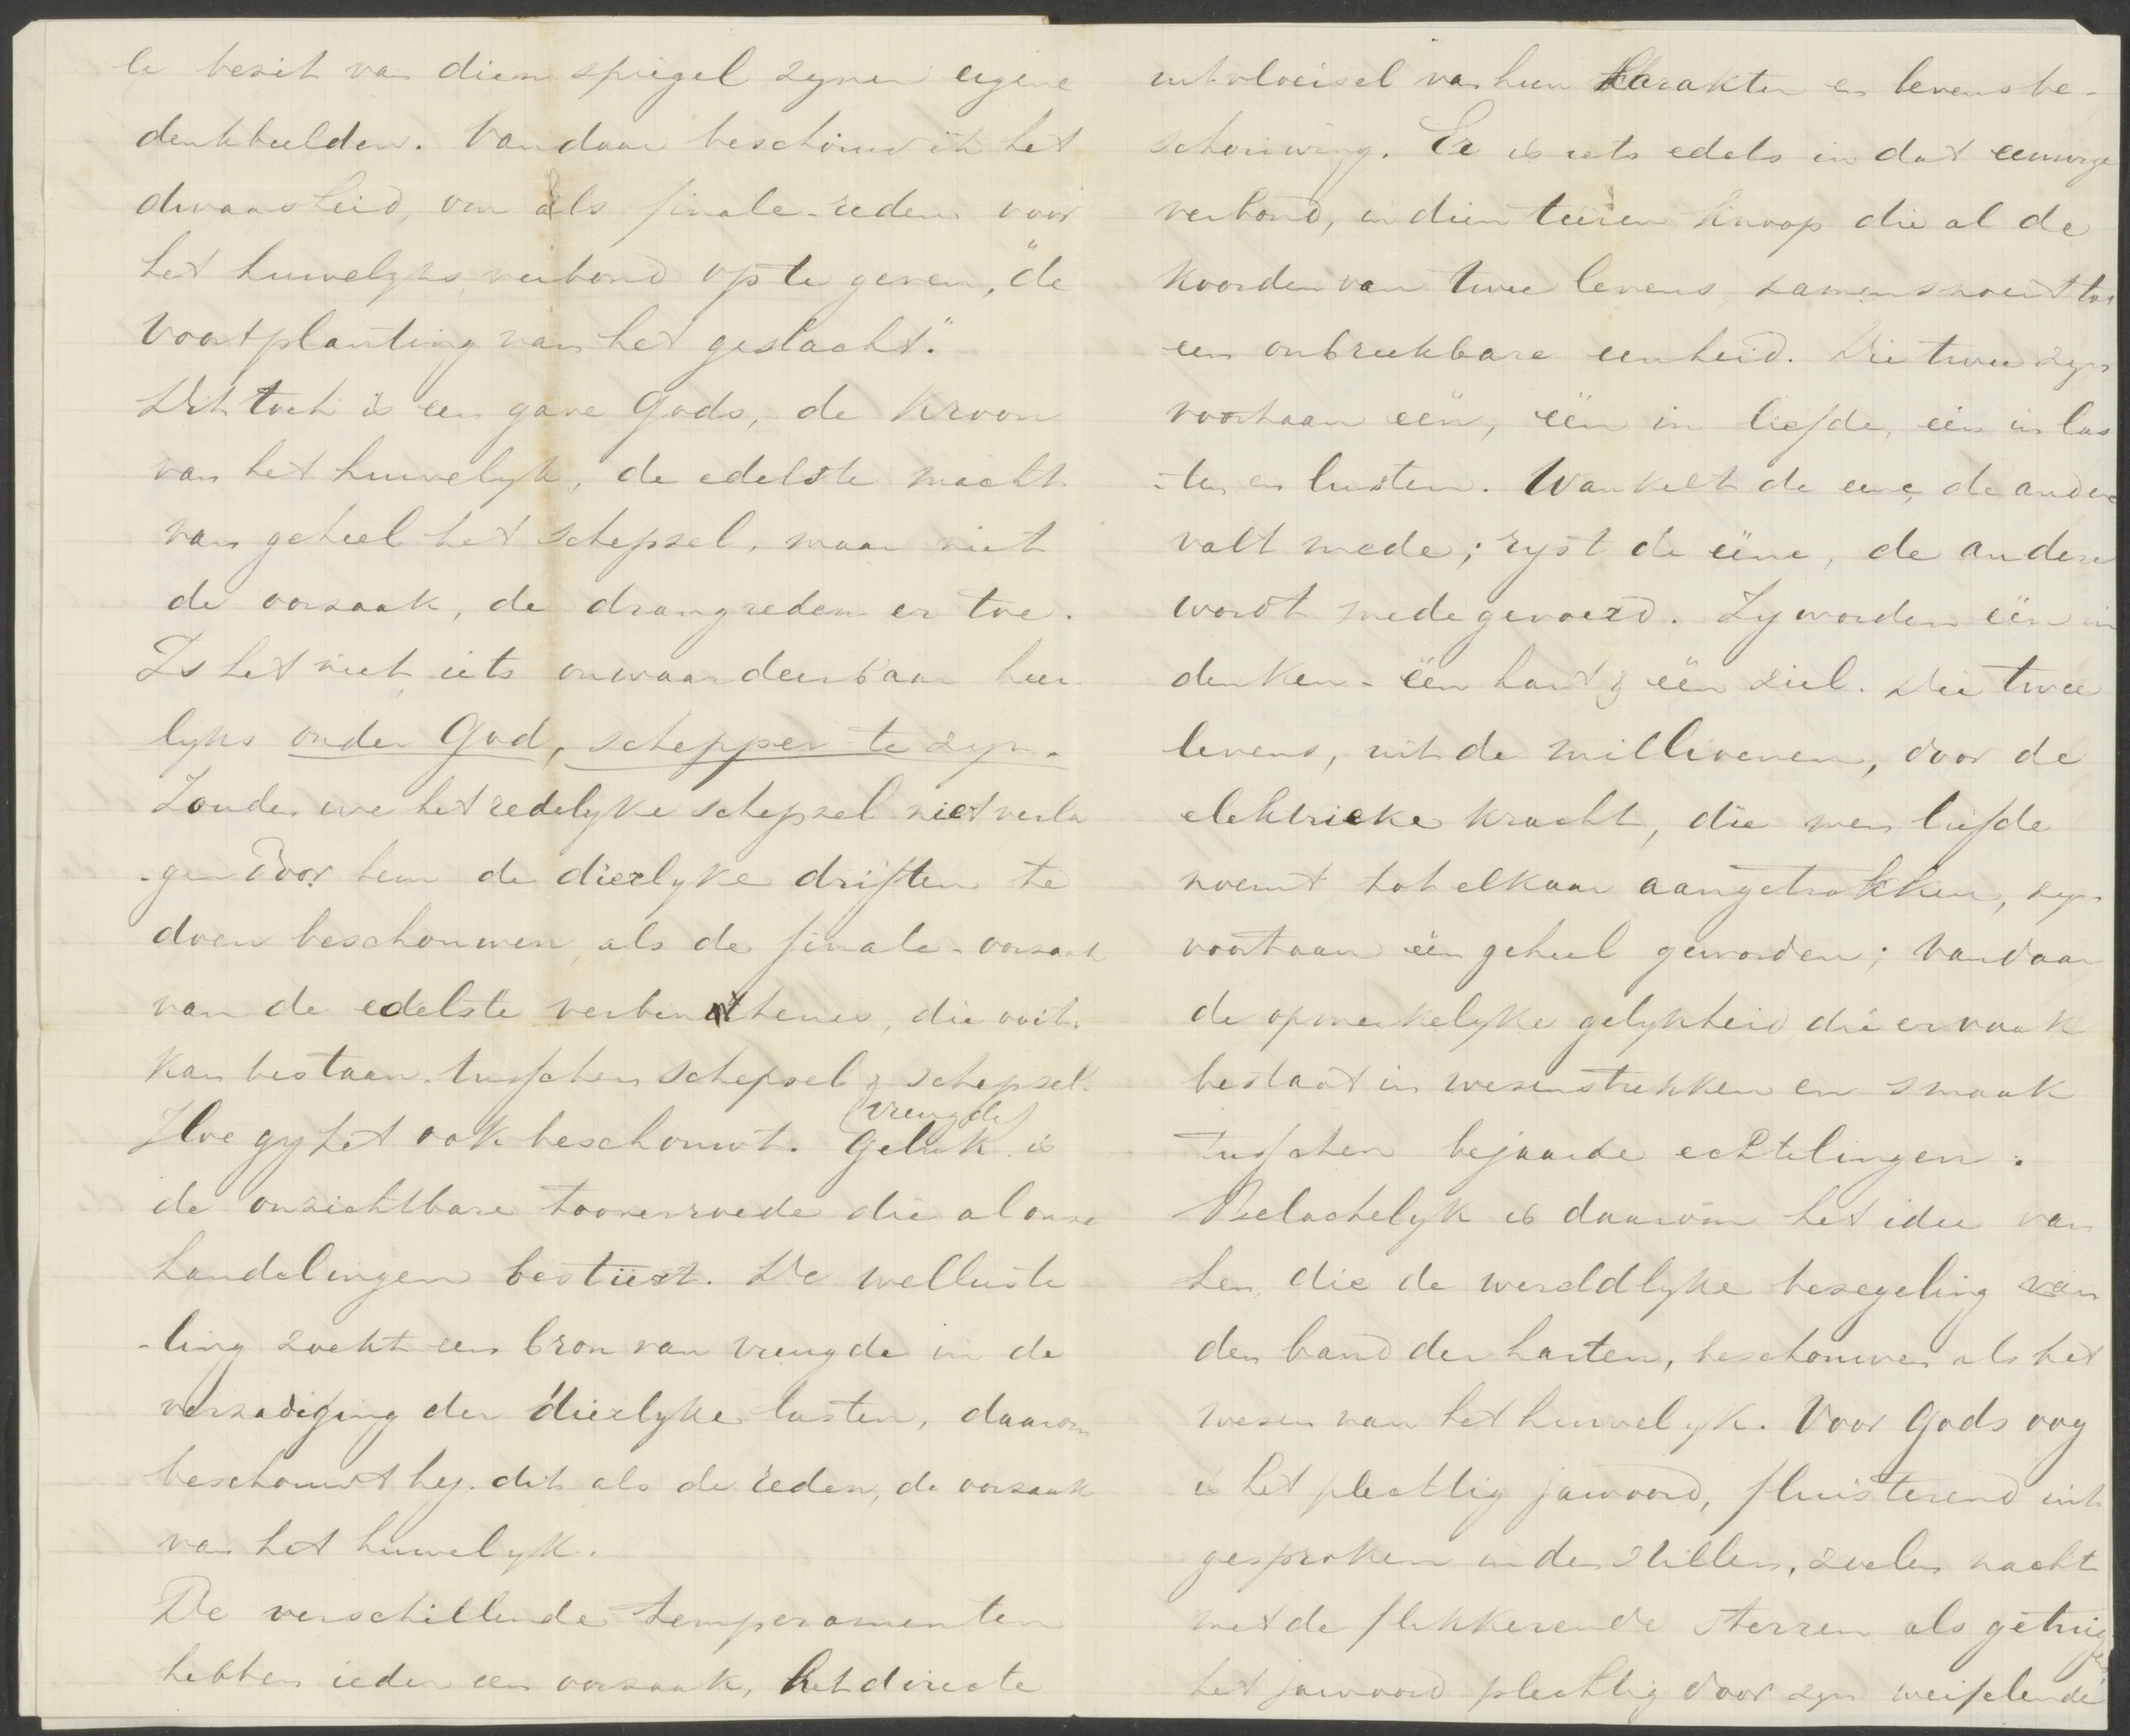 le bezit van dien spiegel zyner eigene
denkbeelden. Vandaar beschouw ik het
dwaasheid, om als finale-reden voor
het huwelyks verbond op te geven, "de
voortplanting van het geslacht."
Dit toch is een gave Gods, de kroon
van het huwelyk, de edelste macht
van geheel het schepsel, maar niet
de oorzaak, de drangreden er toe.
Is het niet iets onwaardeerbaar heer
lyks onder God, schepper te zyn.
Zouden we het redelyke schepsel niet verla
-gen door hem de dierlyke driften te
doen beschouwen als de finale-oorzaak
van de edelste verbintenis, die ooit
kan bestaan tusschen schepsel & schepsel.
Hoe gy het ook beschouwt. Geluk (vreugde) is
de onzichtbare tooverroede die al onze
handelingen bestüert. De welluste
-ling zoekt een bron van vreugde in de
verzadiging der dierlyke lusten, daarom
beschouwt hy dit als de reden, de oorzaak
van het huwelyk.
De verschillende temperamenten
hebben ieder een oorzaak, het directe
uitvloeisel van hun karakter en levensbe-
schouwing. Er is iets edels in dat eeuwige
verbond, in dien teëren knoop die al de
koorden van twee levens samensnoert tot
een onbreekbare eenheid. Die twee zyn
voortaan eën, eën in liefde, eën in las
-ten en lusten. Wankelt de eene de andere
valt mede; ryst de eëne, de andere
wordt medegevoerd. Zy worden eën in
denken - eën hart & eën ziel. Die twee
levens, uit de millioenen, door de
elektrieke kracht, die men liefde
noemt tot elkaar aangetrokken, zyn
voortaan eën geheel geworden; vandaar
de opmerkelyke gelykheid die er vaak
bestaat in wezenstrekken en smaak
tusschen bejaarde echtelingen.
Belachelyk is daarom het idee van
hen, die de wereldlyke bezegeling van
den band der harten, beschouwen als het
wezen van het huwelyk. Voor Gods oog
is het plechtig jawoord, fluisterend uit
gesproken in den stillen, zoelen nacht
met de flikkerende sterren als getuigen
het jawoord plechtig door zyn weifelende